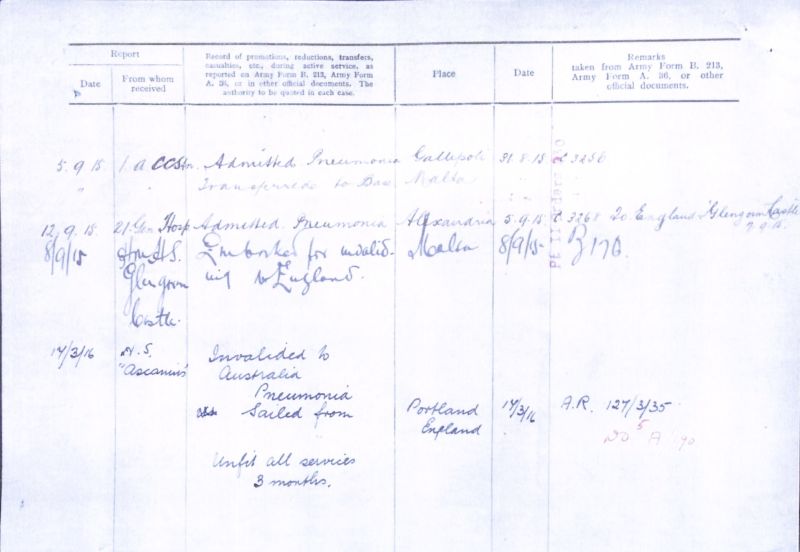 Report
Date
From whom received
Record of promotions, reductions, transfers, casualties, etc., during active service, as reported on Army Form B. 213, Army Form A. 36, or in other official documents. The authority to be quoted in each case.
Place
Date
Remarks
taken from Army Form B. 213, Army Form A. 36, or other official documents.
5.9.15 1. A CCStn. Admitted Pneumonia Gallipoli 31.8.15 3256
" " Transferred to Base Malta " "
12.9.15 21 Gen Hosp Admitted Pneumonia Alexandria 5.9.15 3268 To England "Glengorm Castle
7.9.15.
8/9/15 H.S. Embarked for invalid- Malta 8/9/15 B 170.
Glengorm ing to England.
Castle.
17/3/16 H.S. Invalided to
"Ascanius" Australia
Pneumonia
Sailed from Portland 17/3/16 A.R. 127/3/35
England
DO 5 A 90
Unfit all services
3 months.